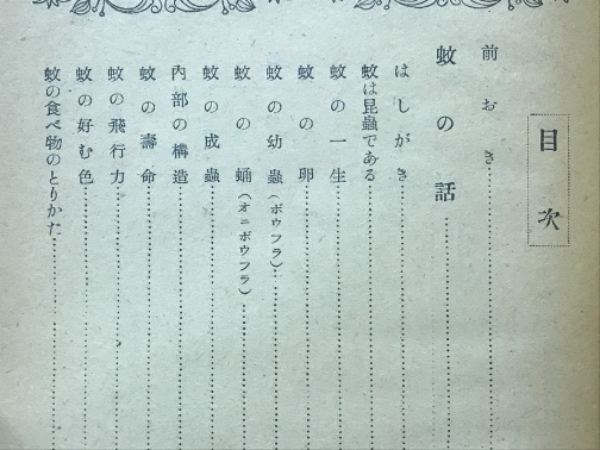 目次
前おき
蚊の話
はしがき
蚊は昆蟲である
蚊の一生
蚊の卵
蚊の幼蟲（ボウフラ）
蚊の蛹（オニボウフラ）
蚊の成蟲
內部の構造
蚊の壽命
蚊の飛行力
蚊の好む色
蚊の食べ物のとりかた